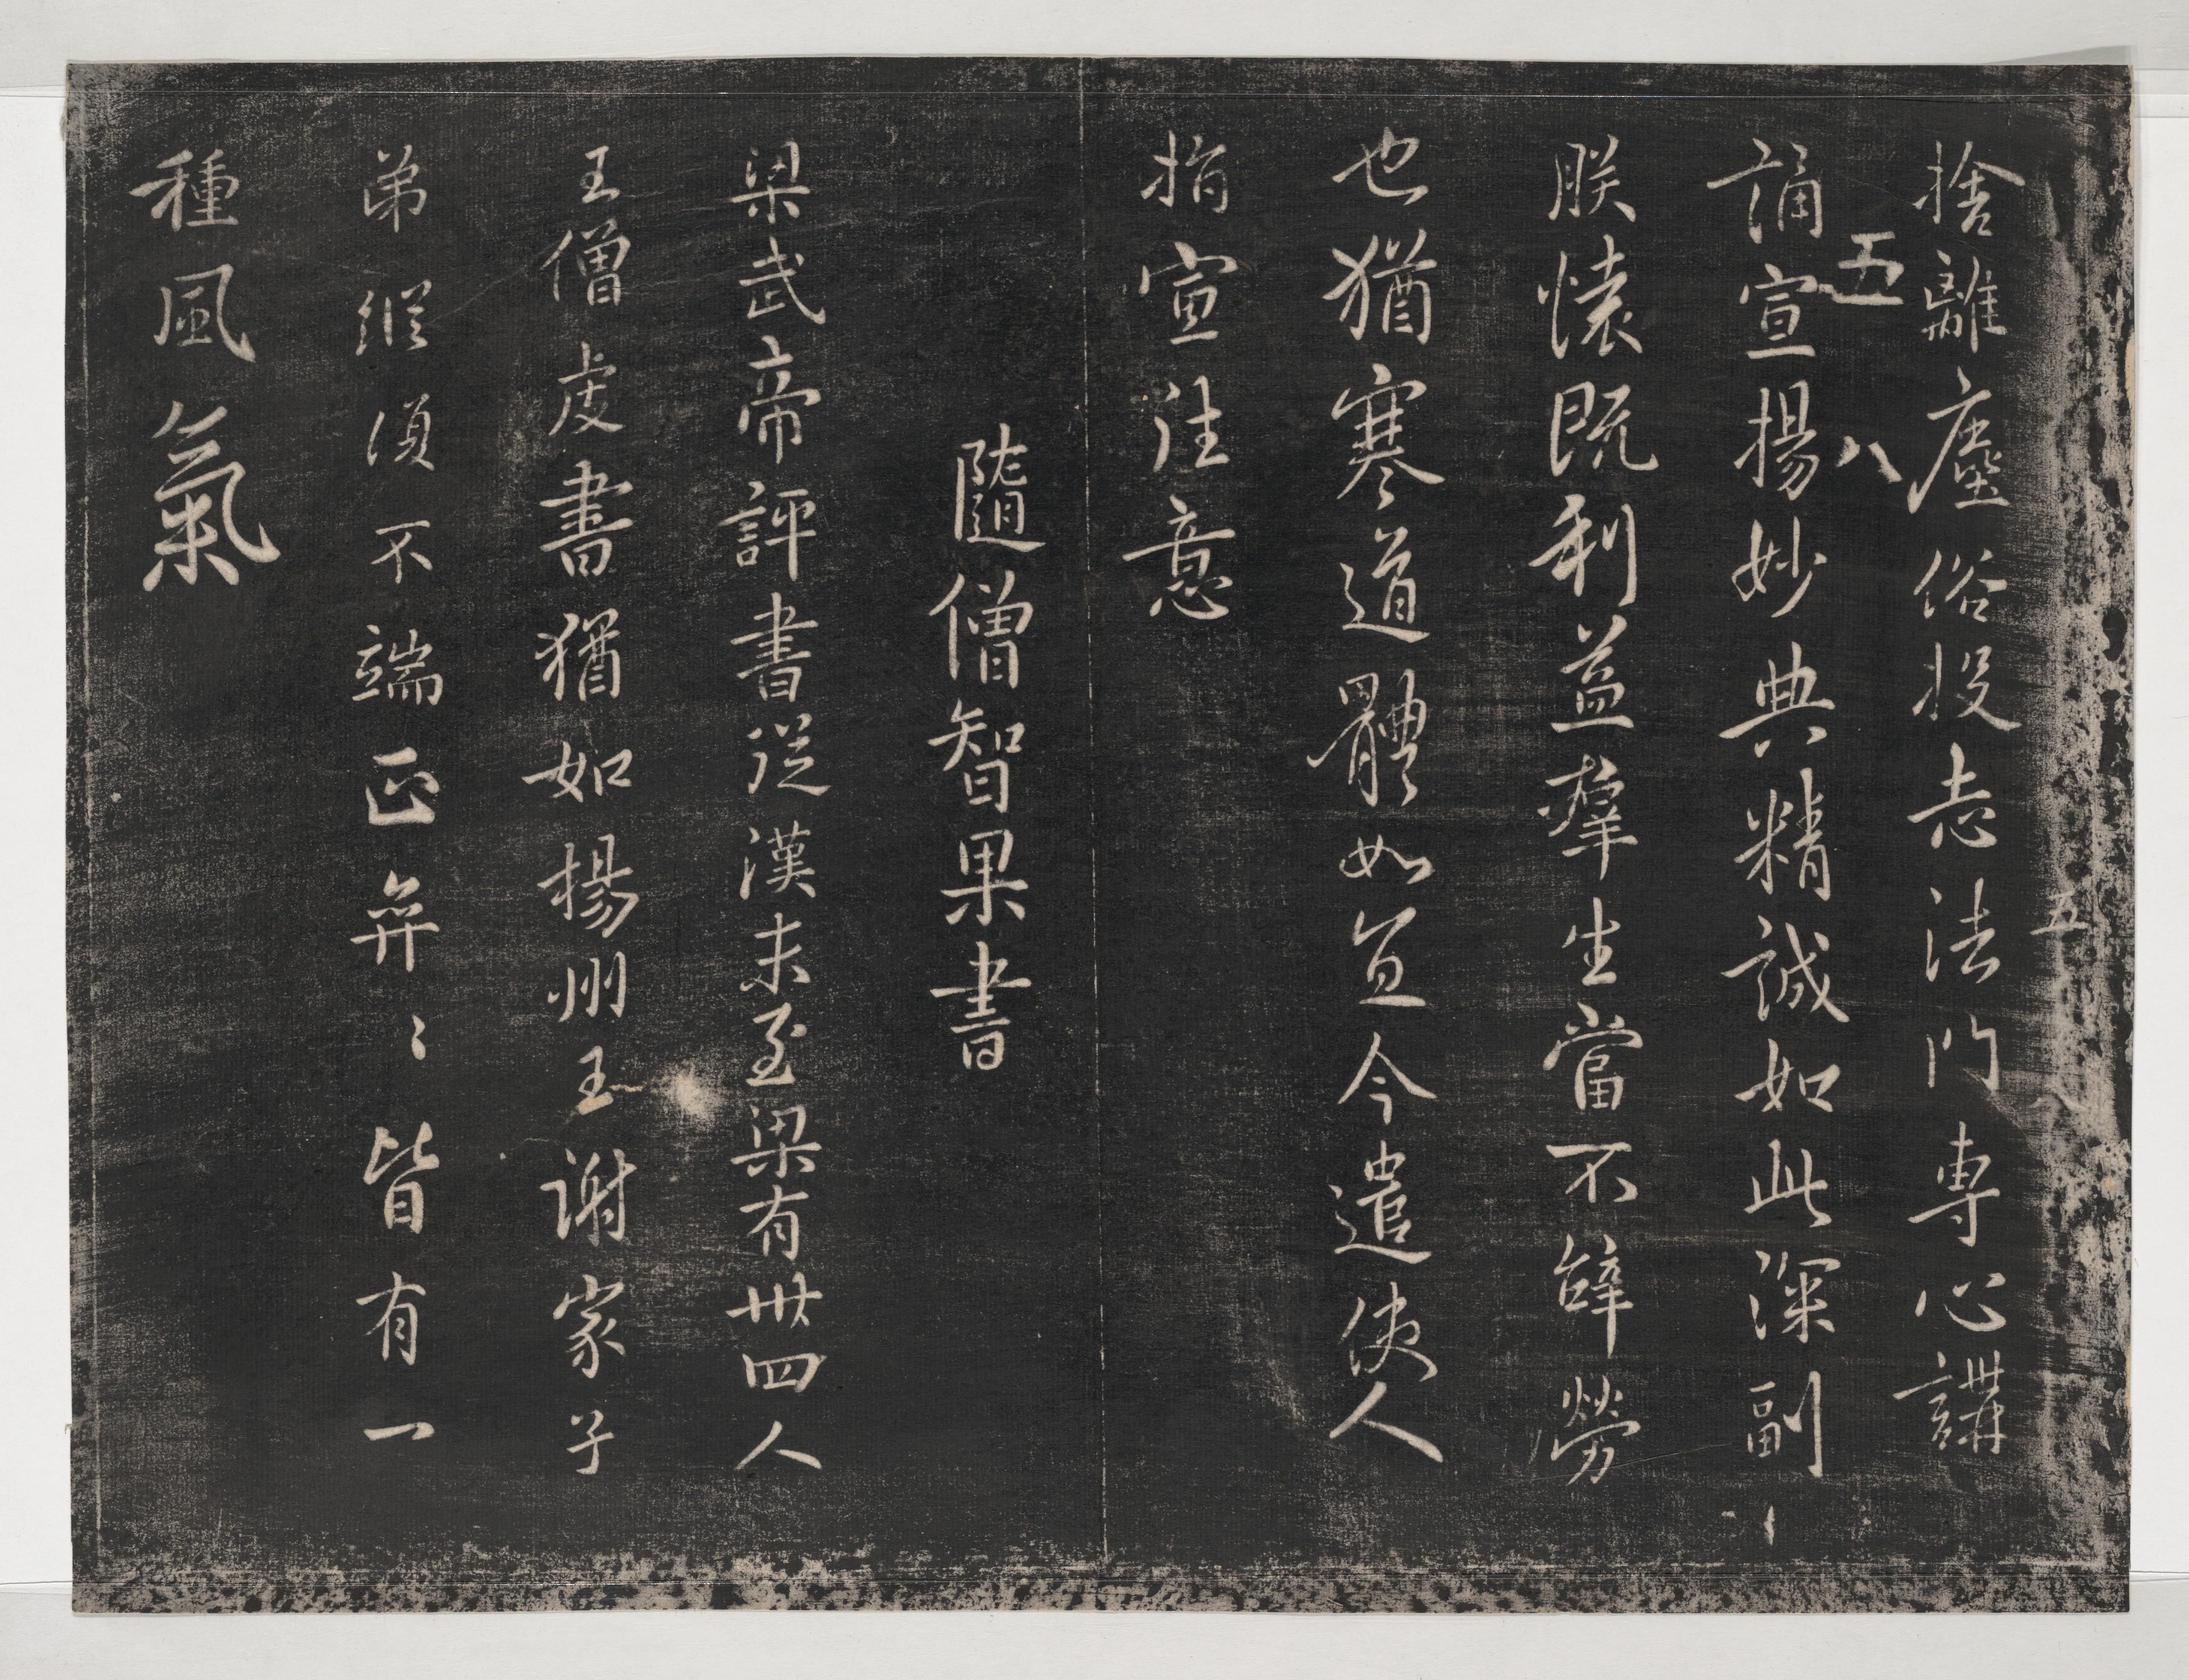 捨離塵俗投志法門專心講
五 八
五
誦宣揚妙典精誠如此深副
朕懷既利益羣生當不辭勞
也猶寒道體如宜今遣使人
指宣往意
隨僧智果書
梁武帝評書從漢末至梁有卅四人
王僧虔書猶如揚州王謝家子
弟縱須不端正弈〻皆有一
種風氣